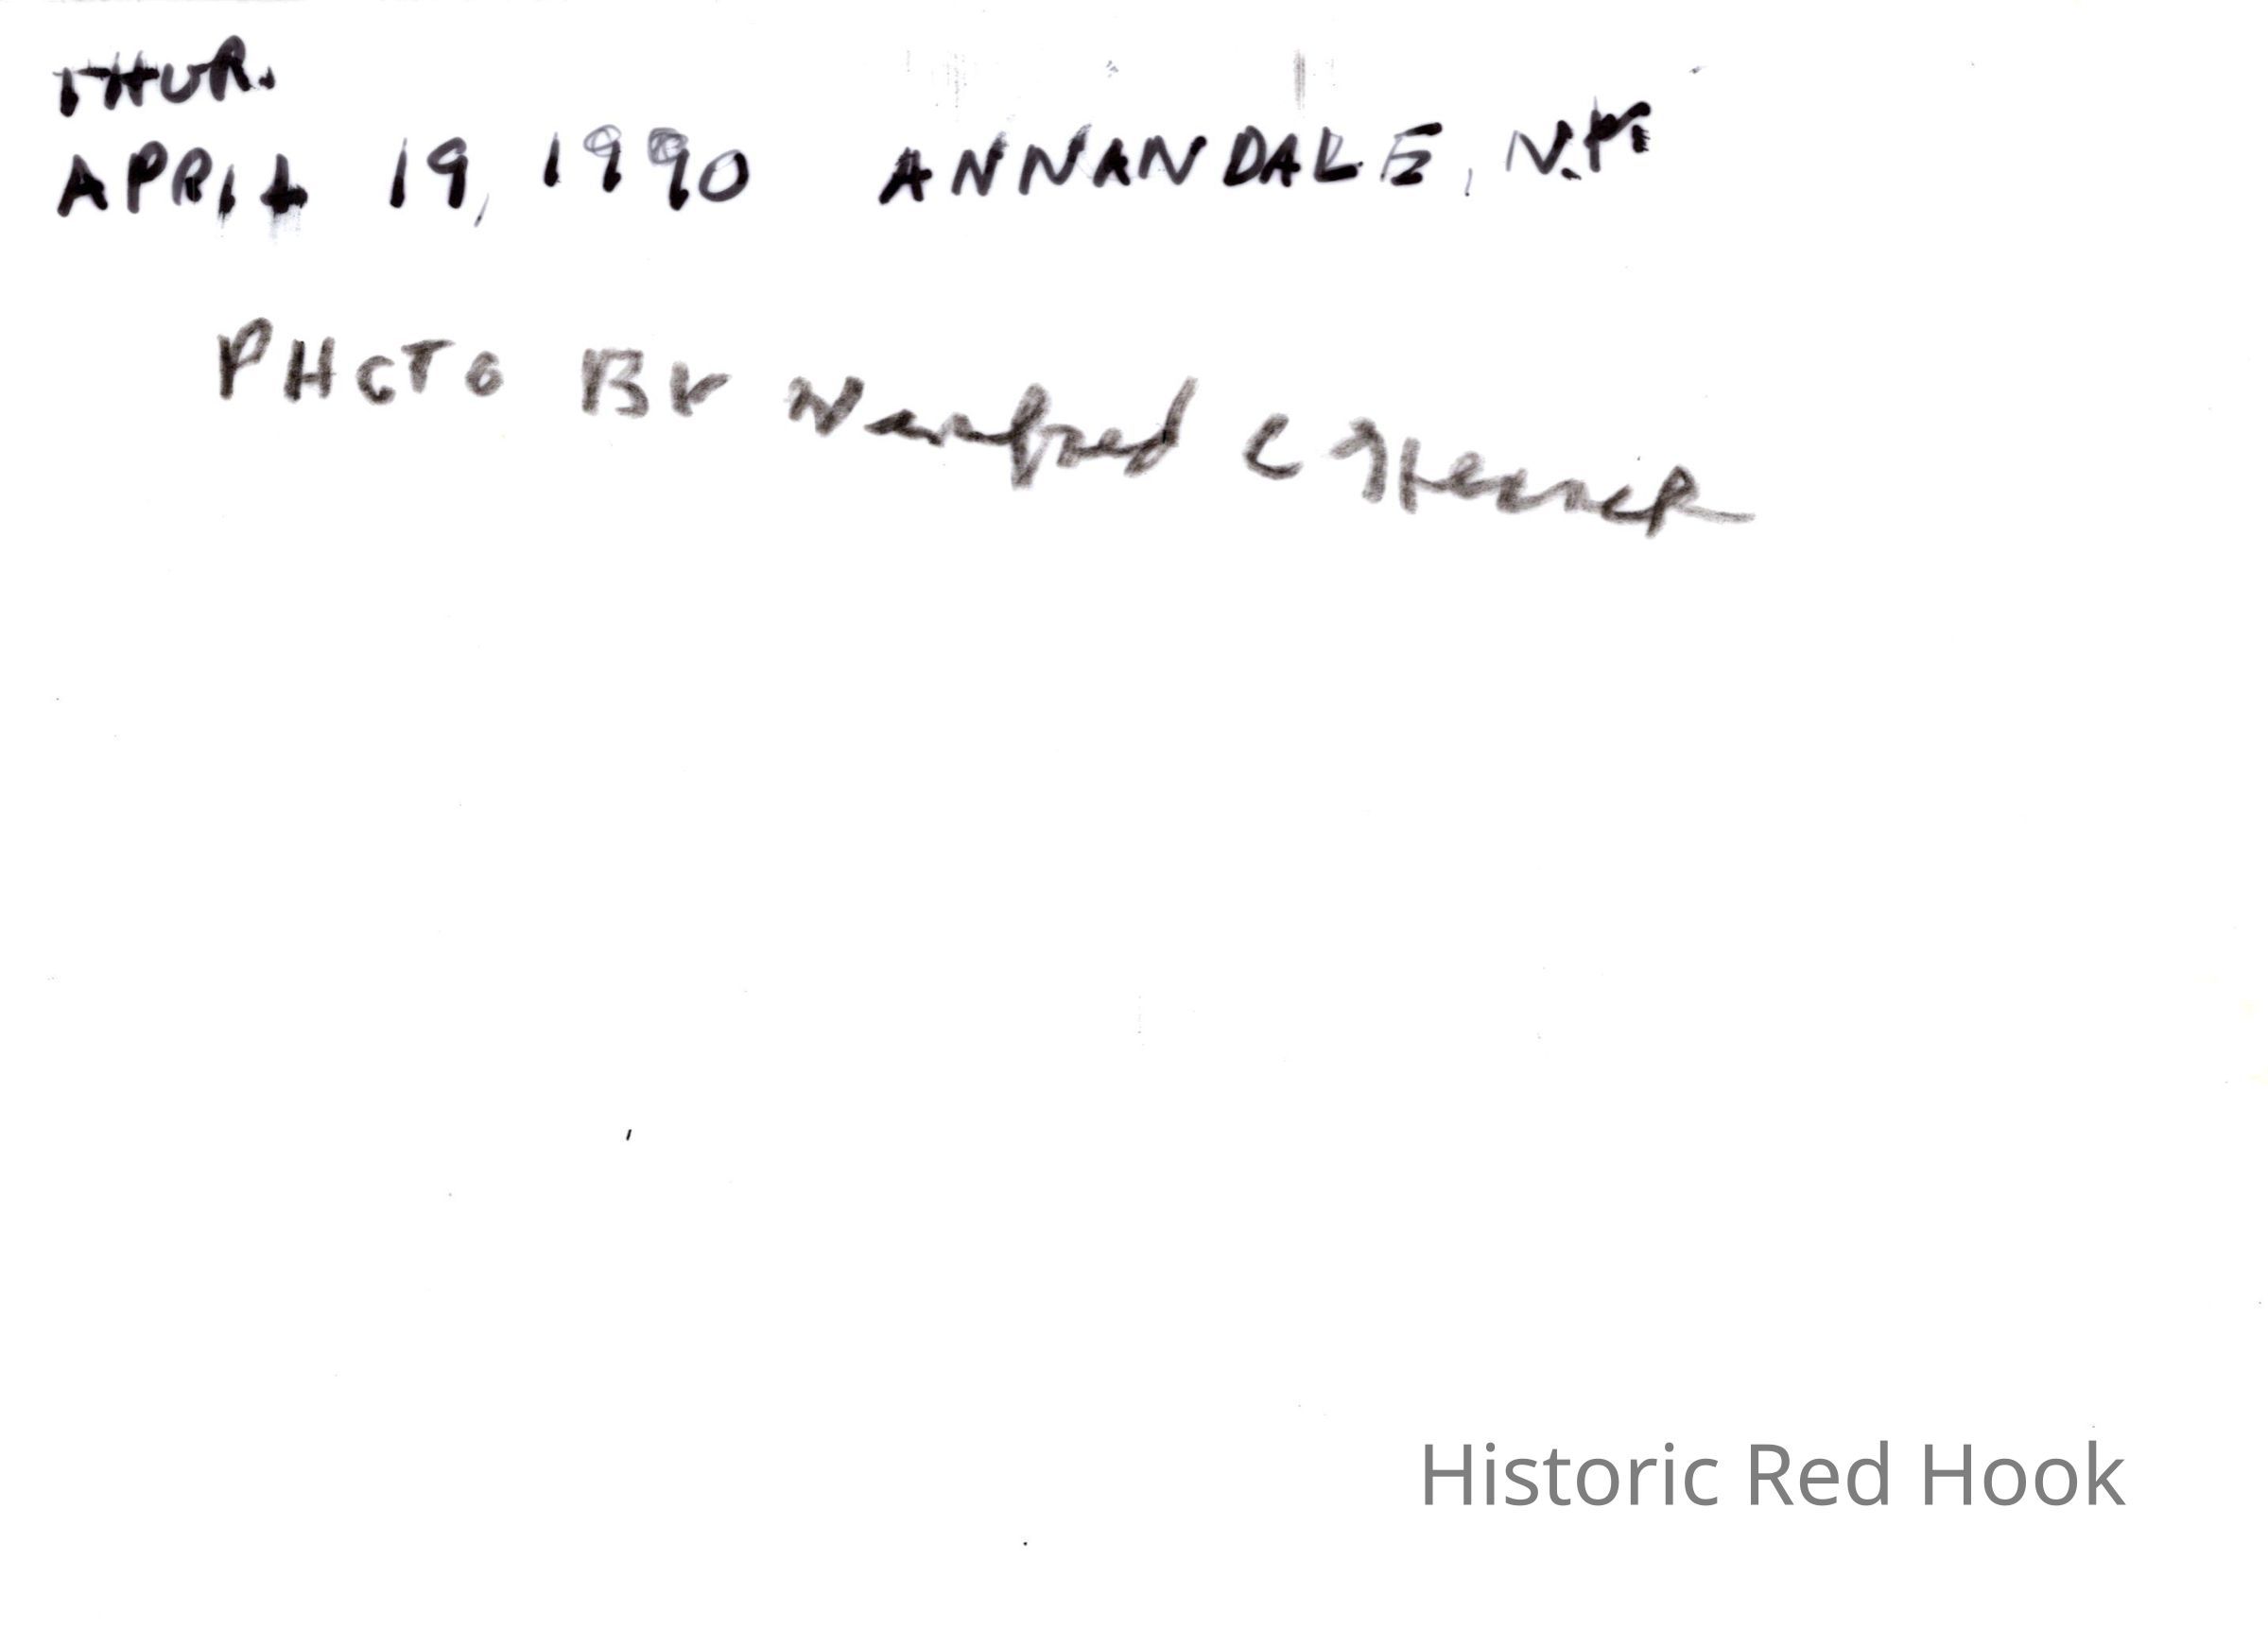 THUR.
APRIL 19, 1990 ANNANDALE, N.Y.
PHOTO BY C
Historic Red Hook